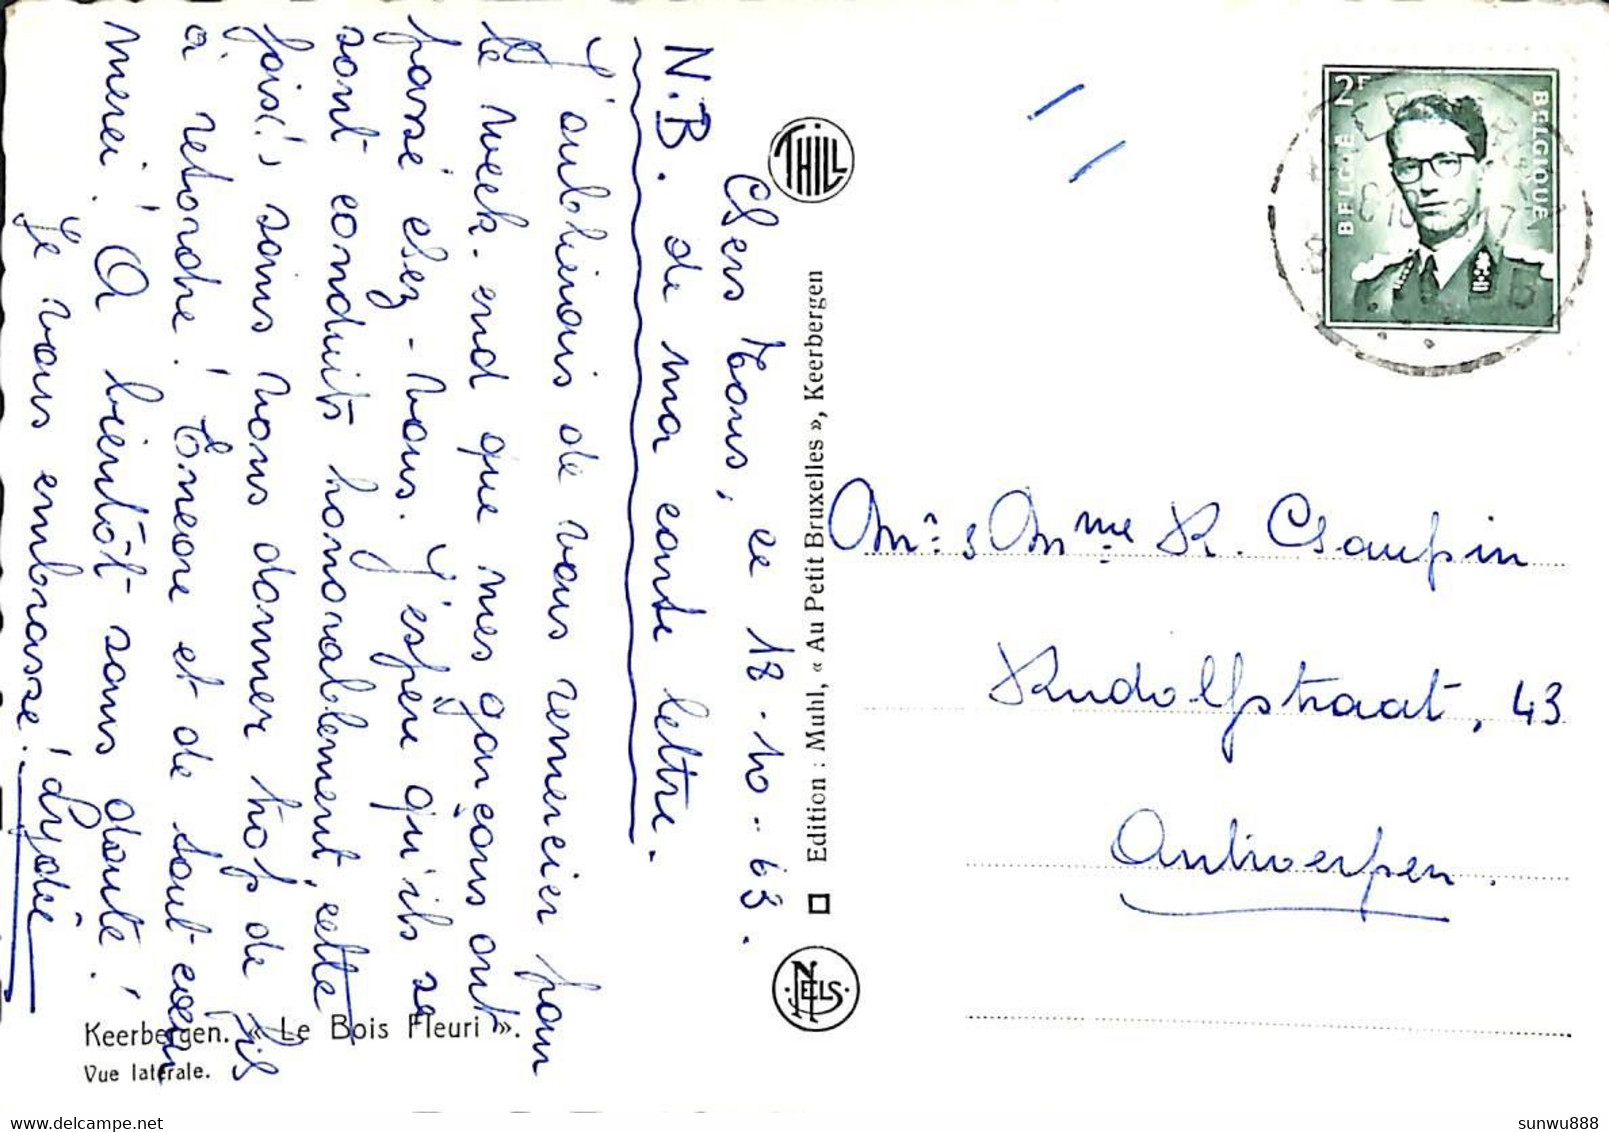 Chers tous, ce 18-10-63.
N.B. de ma carte lettre.
J'oubliais de vous remercier pour
le week-end que mes garçons ont
passé chez-vous. J'espère qu'ils se
sont conduits honorablement, cette
fois! sans vous donner trop de fil
à retordre! Encore et de tout cœur
merci! A bientôt sans doute!
Je vous embrasse! Lydie
Keerbergen. « Le Bois Fleuri ».
Vue latérale.
THILL
Edition : Muhl, « Au Petit Bruxelles », Keerbergen
NELS
2F
BELGIË
BELGIQUE
Mr & Mme R. Chaupin
Rudolfstraat, 43
Antwerpen.
sunwu888